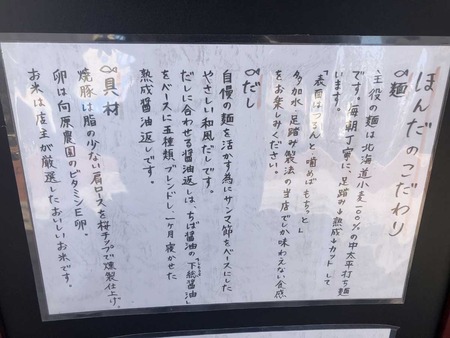 ほんだのこだわり
∞麺
主役の麺は北海道小麦100%の中太平打ち麺
です。毎朝丁寧に、足踏み→熟成→カットして
います。
「表面はつるんと噛めばもちっと」
多加水、足踏み製法の当店でしか味わえない食感
をお楽しみください。
∞だし
自慢の麺を活かす為にサンマ節をベースにした
やさしい和風だしです。
だしに合わせる醤油返しは、ちば醤油の「下総醤油」
をベースに五種類ブレンドし、一ヶ月寝かせた
熟成醤油返しです。
∞具材
焼豚は脂の少ない肩ロースを桜チップで燻製仕上げ。
卵は向原農園のビタミンE卵。
お米は店主が厳選したおいしいお米です。